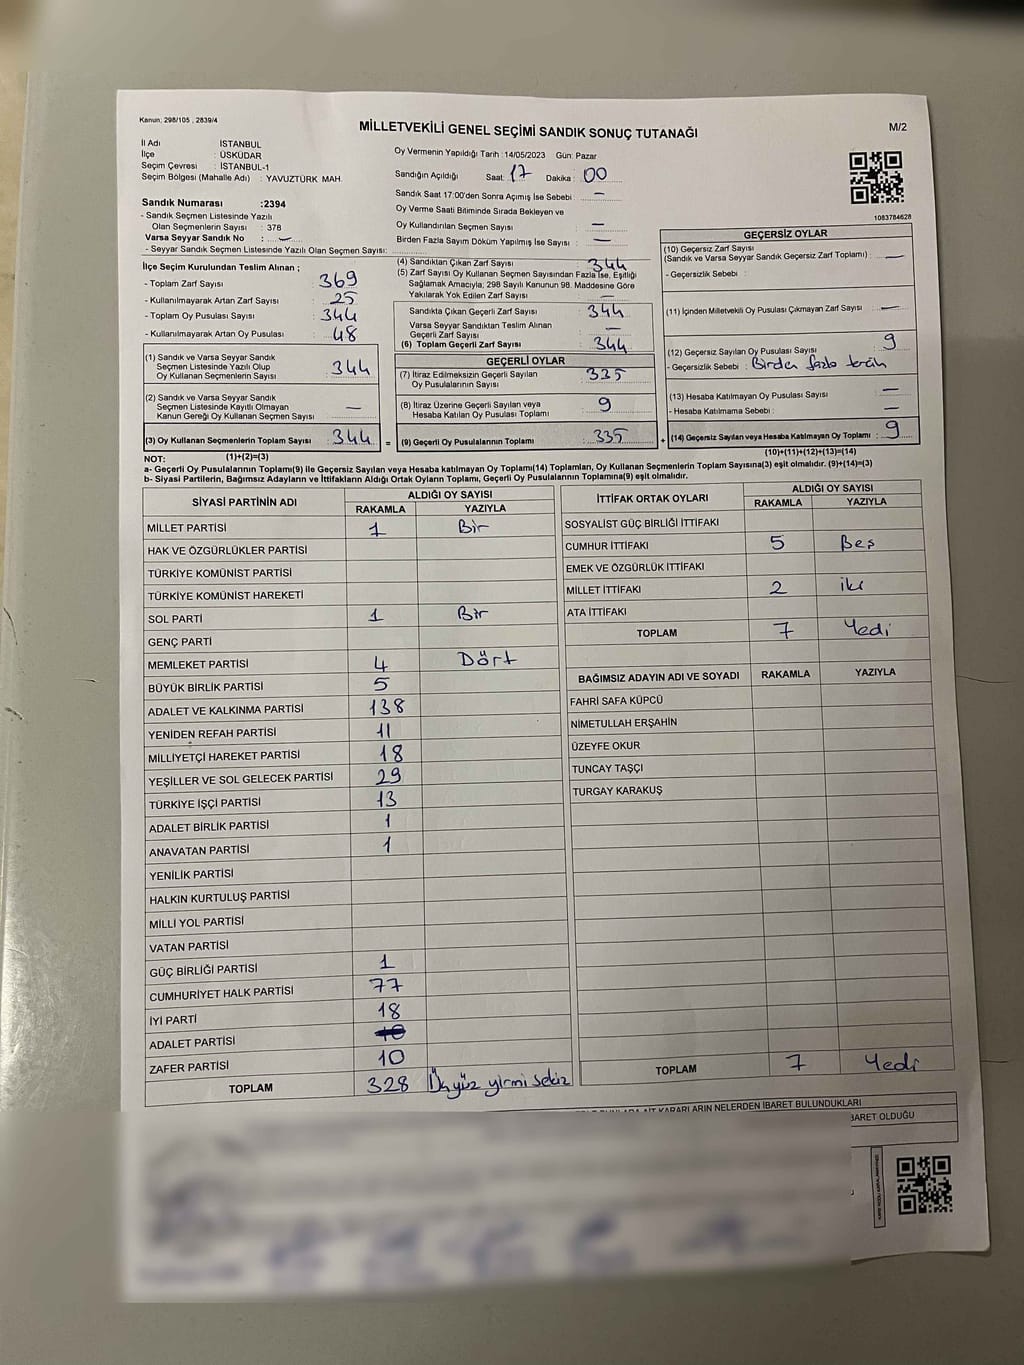 Kanun; 298/105 , 2839/4
MİLLETVEKİLİ GENEL SEÇİMİ SANDIK SONUÇ TUTANAĞI
M/2
İl Adı : İSTANBUL
İlçe : ÜSKÜDAR
Seçim Çevresi : İSTANBUL-1
Seçim Bölgesi (Mahalle Adı) : YAVUZTÜRK MAH.
Oy Vermenin Yapıldığı Tarih : 14/05/2023 Gün: Pazar
Sandığın Açıldığı Saat: 17 Dakika : 00
Sandık Saat 17:00'den Sonra Açımış İse Sebebi : —
Oy Verme Saati Bitiminde Sırada Bekleyen ve
Oy Kullandırılan Seçmen Sayısı : —
Birden Fazla Sayım Döküm Yapılmış İse Sayısı : —
1083784628
Sandık Numarası :2394
- Sandık Seçmen Listesinde Yazılı
Olan Seçmenlerin Sayısı : 378
Varsa Seyyar Sandık No : —
- Seyyar Sandık Seçmen Listesinde Yazılı Olan Seçmen Sayısı:
İlçe Seçim Kurulundan Teslim Alınan ;
- Toplam Zarf Sayısı : 369
- Kullanılmayarak Artan Zarf Sayısı : 25
- Toplam Oy Pusulası Sayısı : 344
- Kullanılmayarak Artan Oy Pusulası : 48
(1) Sandık ve Varsa Seyyar Sandık
Seçmen Listesinde Yazılı Olup
Oy Kullanan Seçmenlerin Sayısı : 344
(2) Sandık ve Varsa Seyyar Sandık
Seçmen Listesinde Kayıtlı Olmayan
Kanun Gereği Oy Kullanan Seçmen Sayısı : —
(3) Oy Kullanan Seçmenlerin Toplam Sayısı : 344 =
(1)+(2)=(3)
(4) Sandıktan Çıkan Zarf Sayısı : 344
(5) Zarf Sayısı Oy Kullanan Seçmen Sayısından Fazla İse, Eşitliği
Sağlamak Amacıyla; 298 Sayılı Kanunun 98. Maddesine Göre
Yakılarak Yok Edilen Zarf Sayısı : —
Sandıkta Çıkan Geçerli Zarf Sayısı : 344
Varsa Seyyar Sandıktan Teslim Alınan
Geçerli Zarf Sayısı : —
(6) Toplam Geçerli Zarf Sayısı : 344
GEÇERLİ OYLAR
(7) İtiraz Edilmeksizin Geçerli Sayılan
Oy Pusulalarının Sayısı : 335
(8) İtiraz Üzerine Geçerli Sayılan veya
Hesaba Katılan Oy Pusulası Toplamı : 9
(9) Geçerli Oy Pusulalarının Toplamı : 335 +
GEÇERSİZ OYLAR
(10) Geçersiz Zarf Sayısı
(Sandık ve Varsa Seyyar Sandık Geçersiz Zarf Toplamı) : —
- Geçersizlik Sebebi :
(11) İçinden Milletvekili Oy Pusulası Çıkmayan Zarf Sayısı : —
(12) Geçersiz Sayılan Oy Pusulası Sayısı : 9
- Geçersizlik Sebebi : Birden fazla
(13) Hesaba Katılmayan Oy Pusulası Sayısı : —
- Hesaba Katılmama Sebebi : —
(14) Geçersiz Sayılan veya Hesaba Katılmayan Oy Toplamı : 9
(10)+(11)+(12)+(13)=(14)
NOT:
a- Geçerli Oy Pusulalarının Toplamı(9) ile Geçersiz Sayılan veya Hesaba katılmayan Oy Toplamı(14) Toplamları, Oy Kullanan Seçmenlerin Toplam Sayısına(3) eşit olmalıdır. (9)+(14)=(3)
b- Siyasi Partilerin, Bağımsız Adayların ve İttifakların Aldığı Ortak Oyların Toplamı, Geçerli Oy Pusulalarının Toplamına(9) eşit olmalıdır.
SİYASİ PARTİNİN ADI ALDIĞI OY SAYISI
RAKAMLA YAZIYLA
MİLLET PARTİSİ 1 Bir
HAK VE ÖZGÜRLÜKLER PARTİSİ
TÜRKİYE KOMÜNİST PARTİSİ
TÜRKİYE KOMÜNİST HAREKETİ
SOL PARTİ 1 Bir
GENÇ PARTİ
MEMLEKET PARTİSİ 4 Dört
BÜYÜK BİRLİK PARTİSİ 5
ADALET VE KALKINMA PARTİSİ 138
YENİDEN REFAH PARTİSİ 11
MİLLİYETÇİ HAREKET PARTİSİ 18
YEŞİLLER VE SOL GELECEK PARTİSİ 29
TÜRKİYE İŞÇİ PARTİSİ 13
ADALET BİRLİK PARTİSİ 1
ANAVATAN PARTİSİ 1
YENİLİK PARTİSİ
HALKIN KURTULUŞ PARTİSİ
MİLLİ YOL PARTİSİ
VATAN PARTİSİ
GÜÇ BİRLİĞİ PARTİSİ 1
CUMHURİYET HALK PARTİSİ 77
İYİ PARTİ 18
ADALET PARTİSİ
ZAFER PARTİSİ 10
TOPLAM 328 Üçyüz yirmi sekiz
İTTİFAK ORTAK OYLARI ALDIĞI OY SAYISI
RAKAMLA YAZIYLA
SOSYALİST GÜÇ BİRLİĞİ İTTİFAKI
CUMHUR İTTİFAKI 5 Beş
EMEK VE ÖZGÜRLÜK İTTİFAKI
MİLLET İTTİFAKI 2 iki
ATA İTTİFAKI
TOPLAM 7 Yedi
BAĞIMSIZ ADAYIN ADI VE SOYADI RAKAMLA YAZIYLA
FAHRİ SAFA KÜPCÜ
NİMETULLAH ERŞAHİN
ÜZEYFE OKUR
TUNCAY TAŞÇI
TURGAY KARAKUŞ
TOPLAM 7 Yedi
KARARLARIN NELERDEN İBARET BULUNDUKLARI
İBARET OLDUĞU